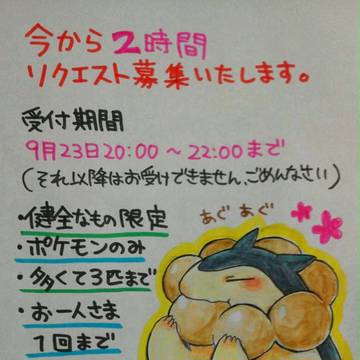 今から2時間
リクエスト募集いたします。
受付期間
9月23日20:00～22:00まで
(それ以降はお受けできません、ごめんなさい)
・健全なもの限定
・ポケモンのみ
・多くて3匹まで
・お一人さま
1回まで
あぐあぐ